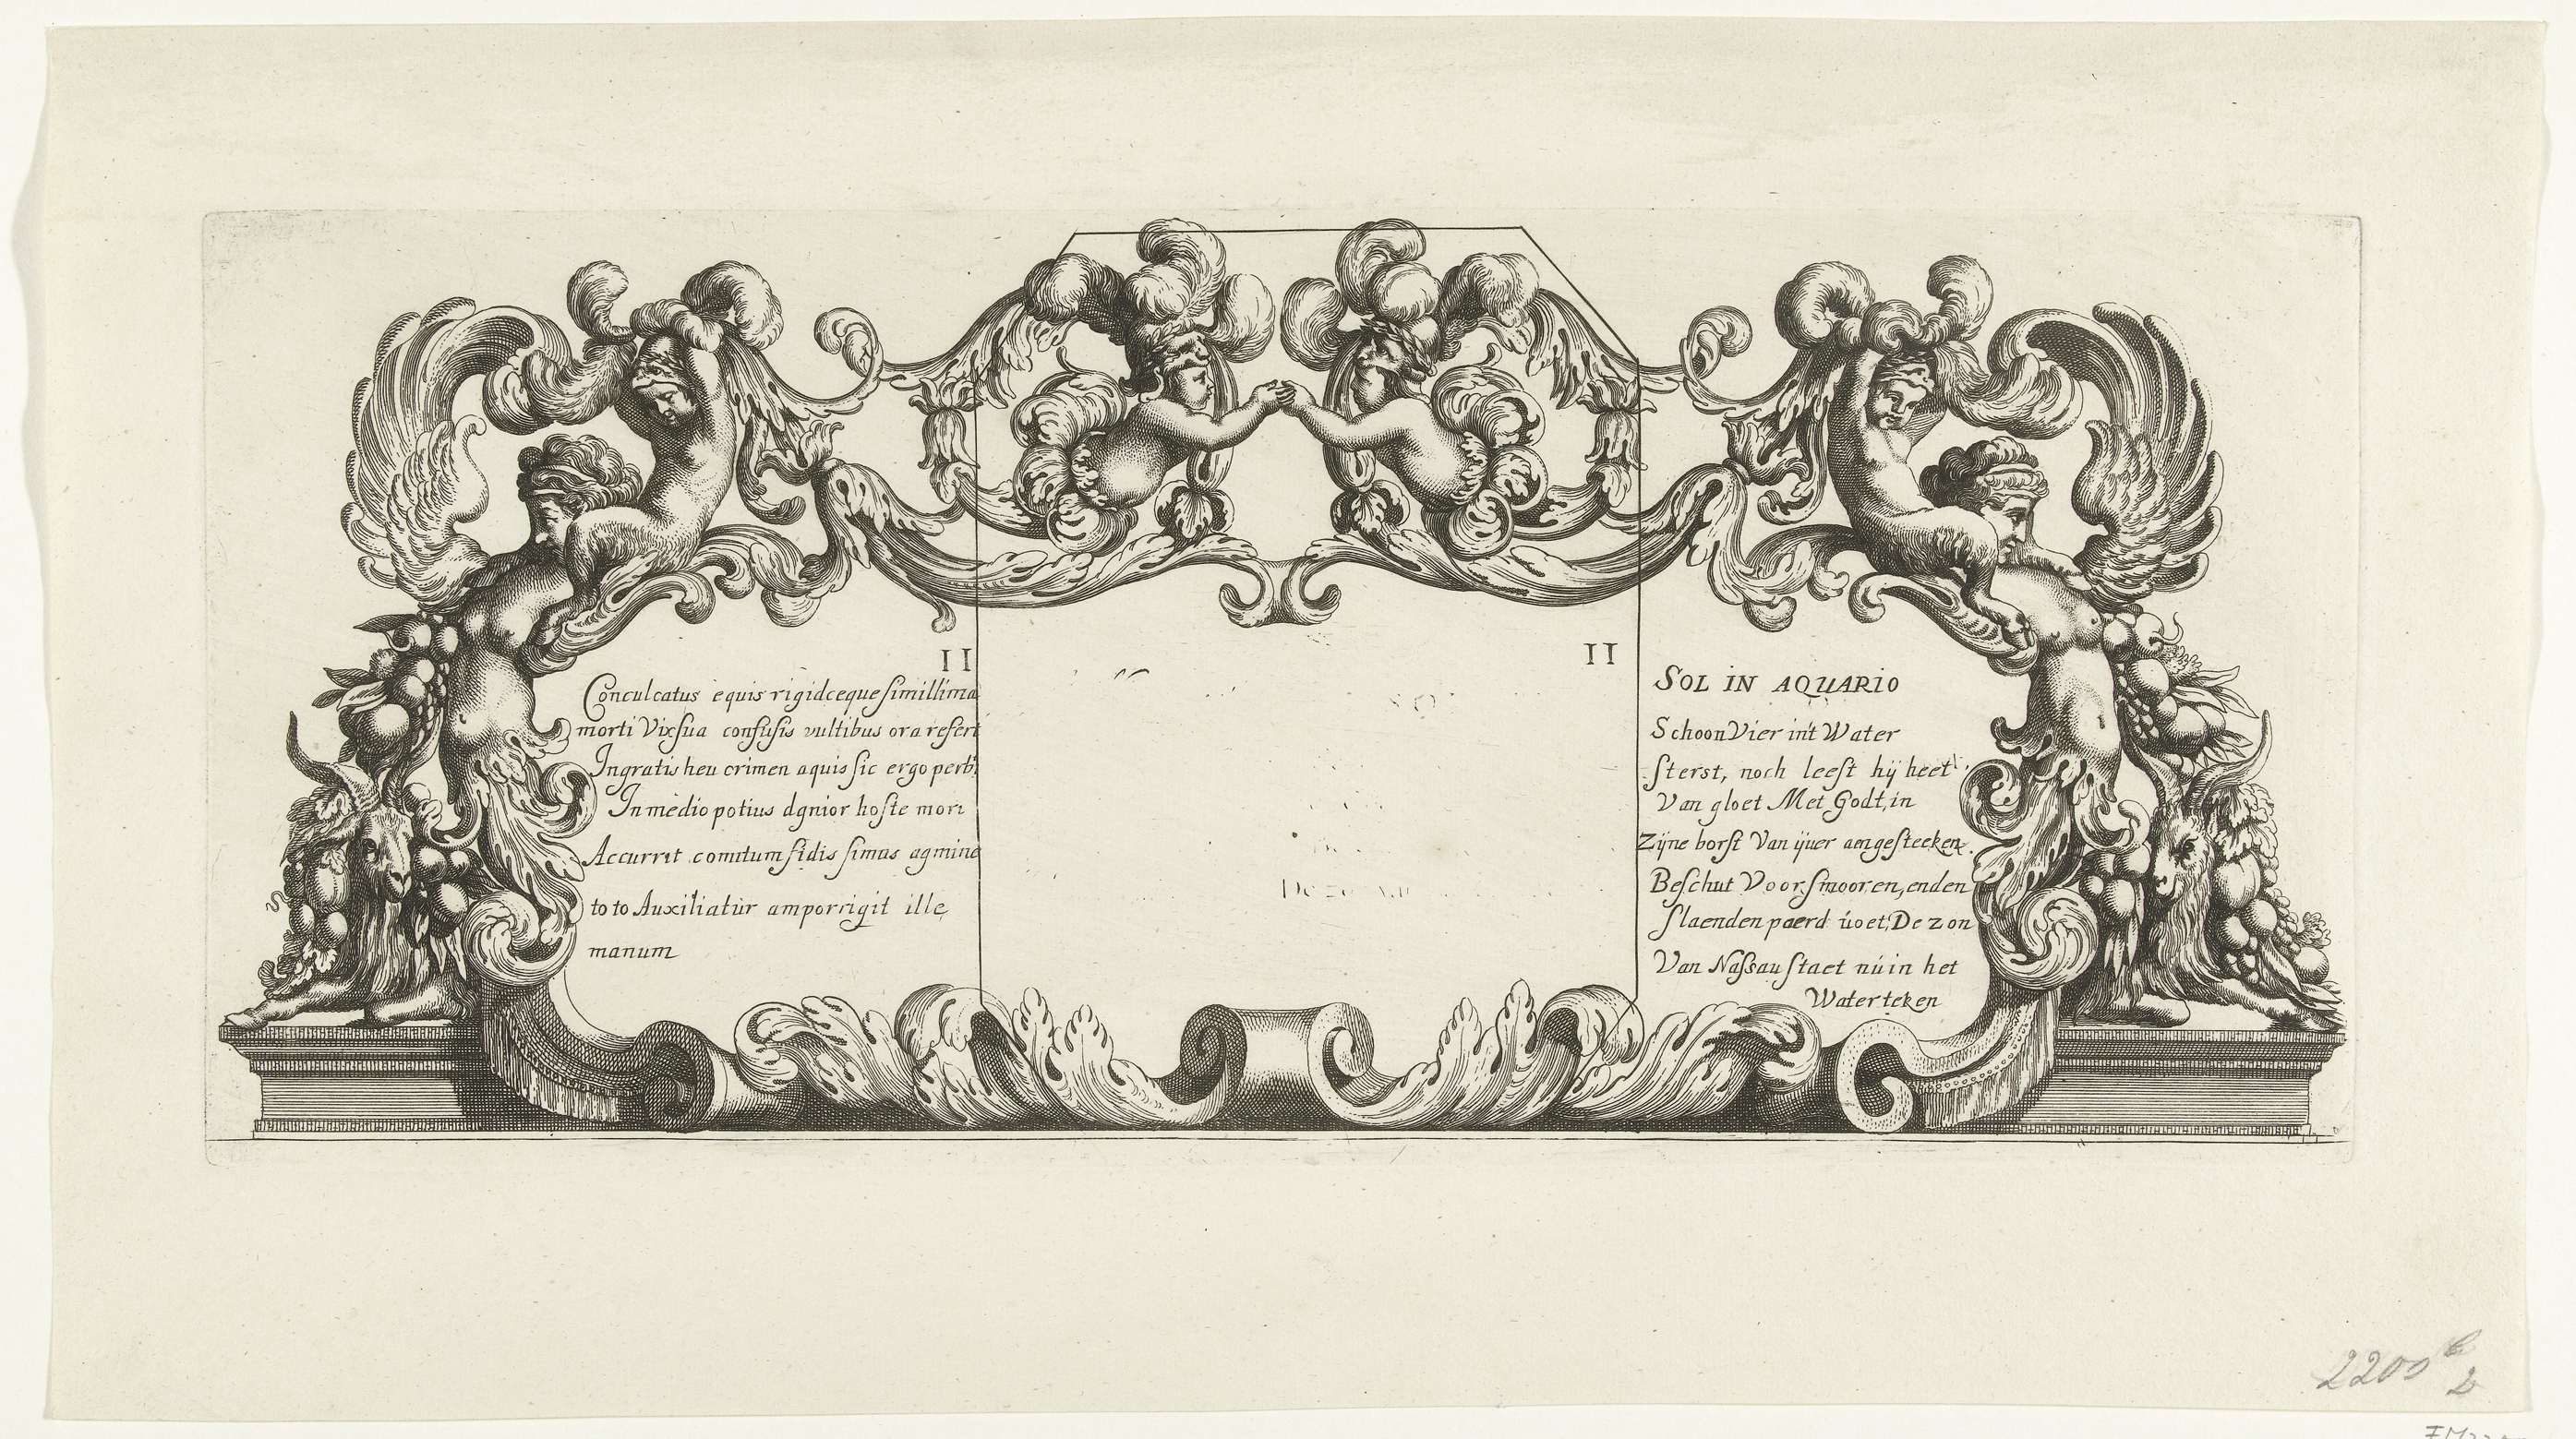 II
Conculcatus equis rigidæque simillima
morti Vix sua confusis vultibus ora refert
Ingratis heu crimen aquis sic ergo peribi
In medio potius dgnior hoste mori
Accurrit comitum fidis simus agmine
toto Auxiliatur amporrigit ille
manum
II
SOL IN AQUARIO
Schoon Vier in't Water
sterst, noch leest hij heet
Van gloet Met Godt, in
Zijne borst Van ijver aengesteeken.
Beschut Voor smooren, enden
slaenden paerd voet, De zon
Van Nassau staet nu in het
Waterteken
2200